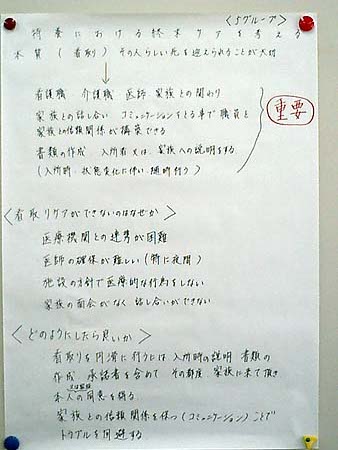 <5グループ>
特養における終末ケアを考える
本質 (看取り) その人らしい死を迎えられることが大切
↓
看護職 介護職 医師 家族との関わり
家族との話し合い コミュニケーションをとる事で職員と
家族との信頼関係が構築できる
書類の作成 入所者又は、家族への説明をする
(入所時、状態変化に伴い、随時行う)
重要
<看取りケアができないのはなぜか>
医療機関との連携が困難
医師の確保が難しい (特に夜間)
施設の方針で医療的な行為をしない
家族の面会がなく 話し合いができない
<どのようにしたら良いか>
看取りを円滑に行うには 入所時の説明 書類の
作成 承諾者を含めて その都度 家族に来て頂き
本人の同意を得る
家族との信頼関係を保つ (コミュニケーション) ことで
トラブルを回避する